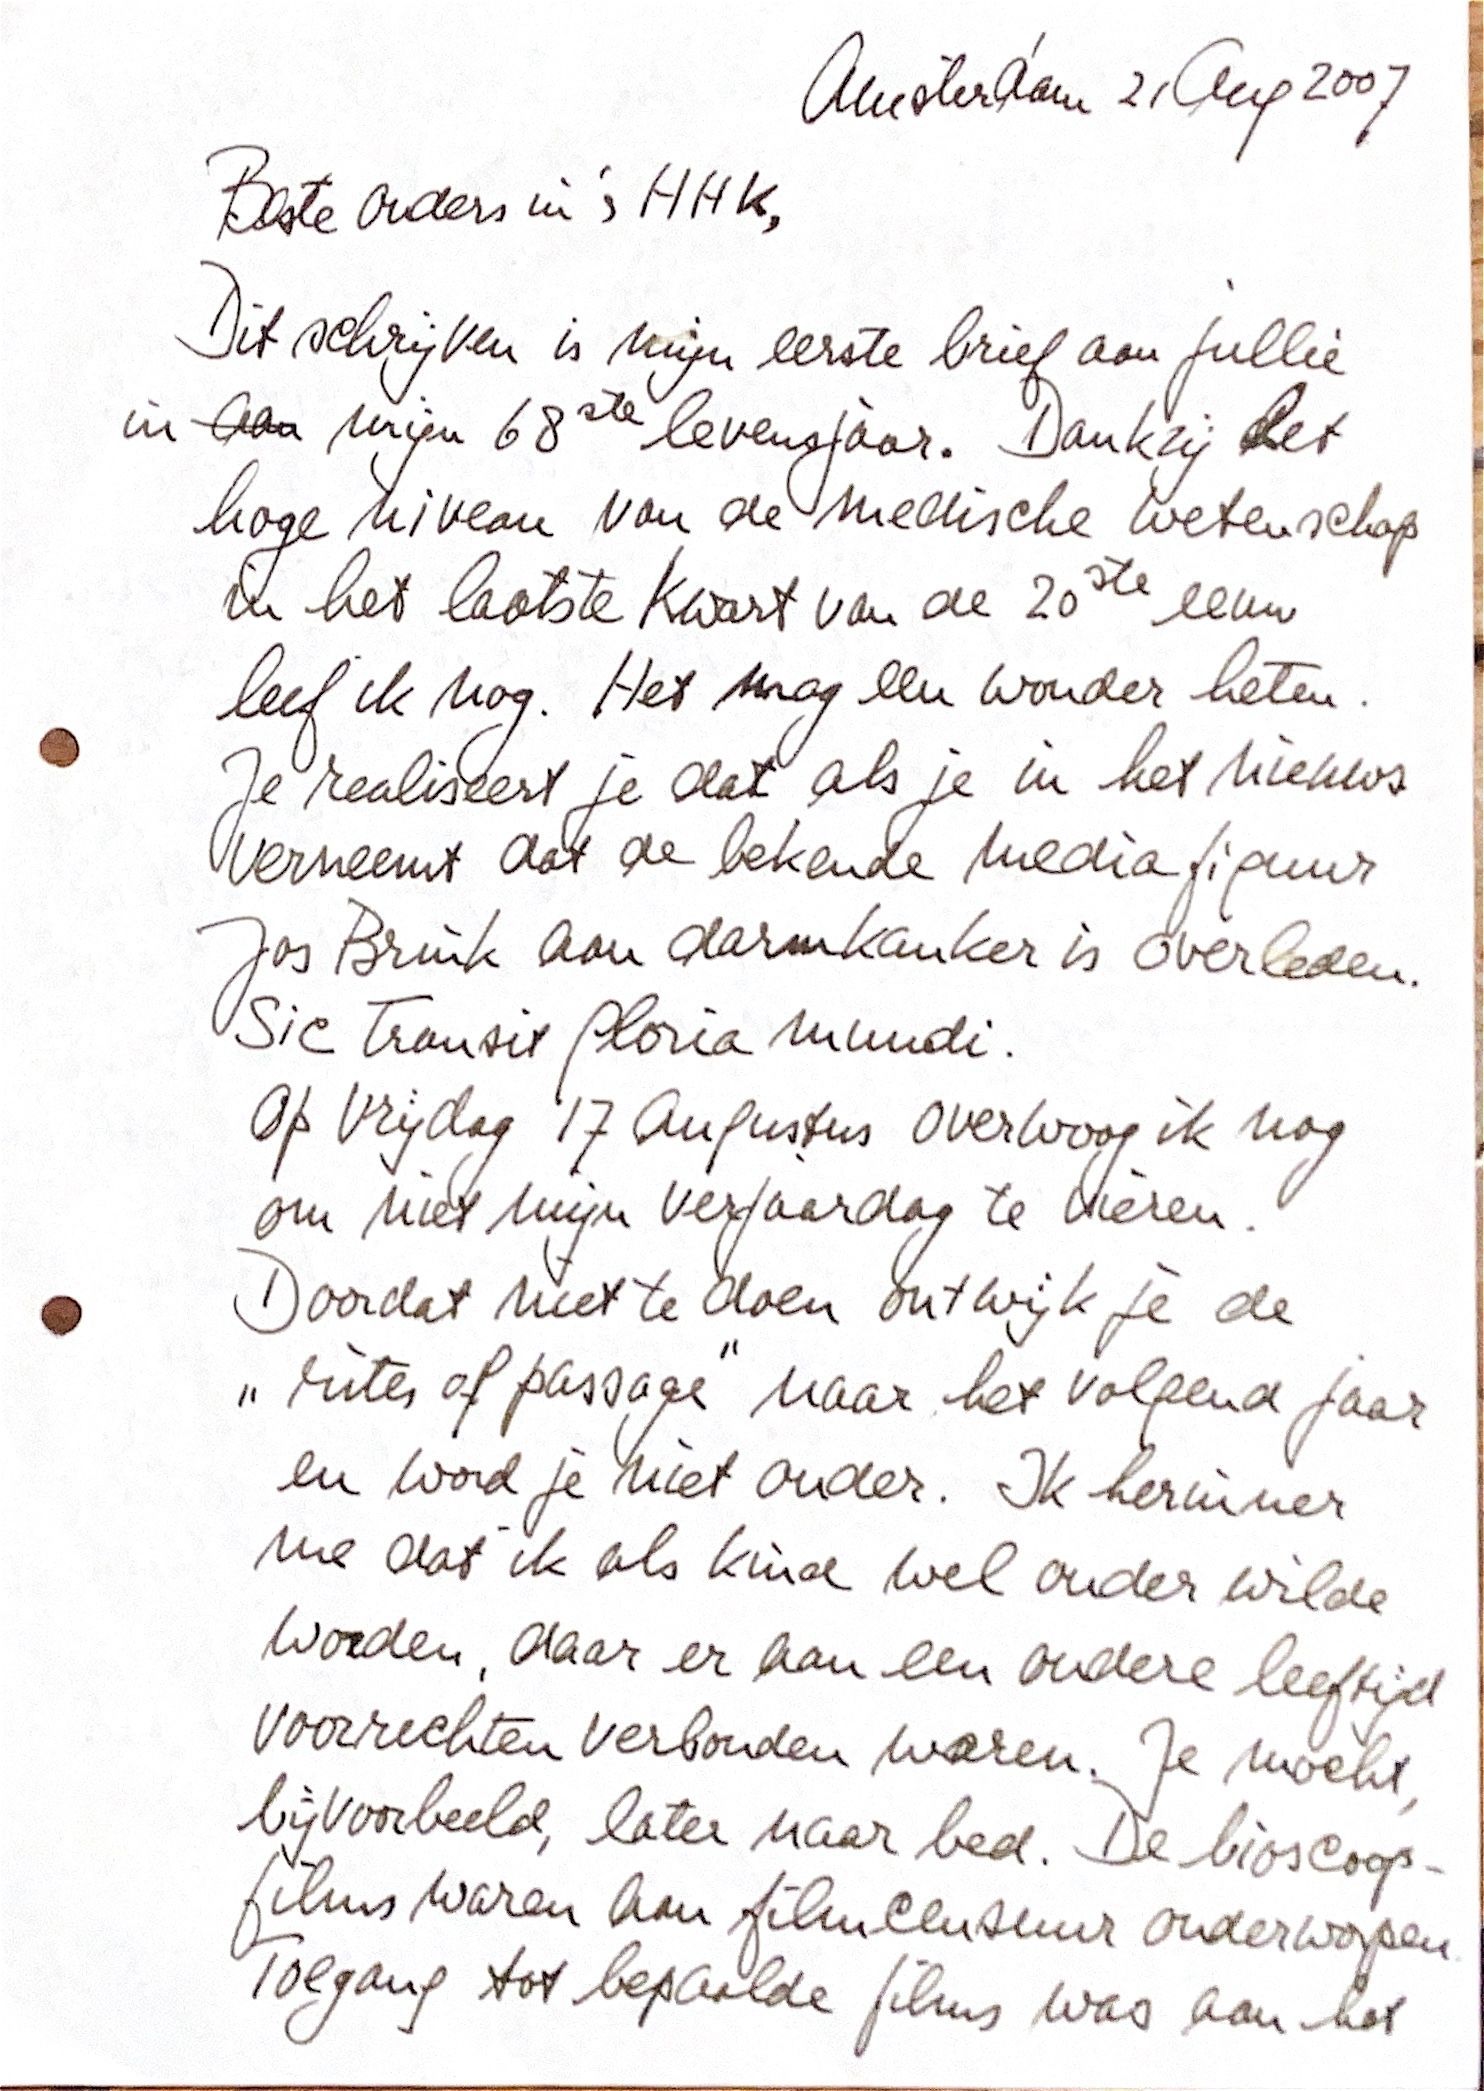 Amsterdam 21 Aug 2007
Beste ouders in 's HHK,
Dit schrijven is mijn eerste brief aan jullie
in aan mijn 68ste levensjaar. Dankzij het
hoge niveau van de medische wetenschap
in het laatste kwart van de 20ste eeuw
leef ik nog. Het mag een wonder heten.
Je realiseert je dat als je in het nieuws
verneemt dat de bekende media figuur
Jos Brink aan darmkanker is overleden.
Sic transit gloria mundi.
Op vrijdag 17 augustus overwoog ik nog
om niet mijn verjaardag te vieren.
Door dat niet te doen ontwijk je de
„rites of passage" naar het volgend jaar
en word je niet ouder. Ik herinner
me dat ik als kind wel ouder wilde
worden, daar er aan een oudere leeftijd
voorrechten verbonden waren. Je mocht,
bijvoorbeeld, later naar bed. De bioscoop-
films waren aan filmcensuur onderworpen.
Toegang tot bepaalde films was aan het